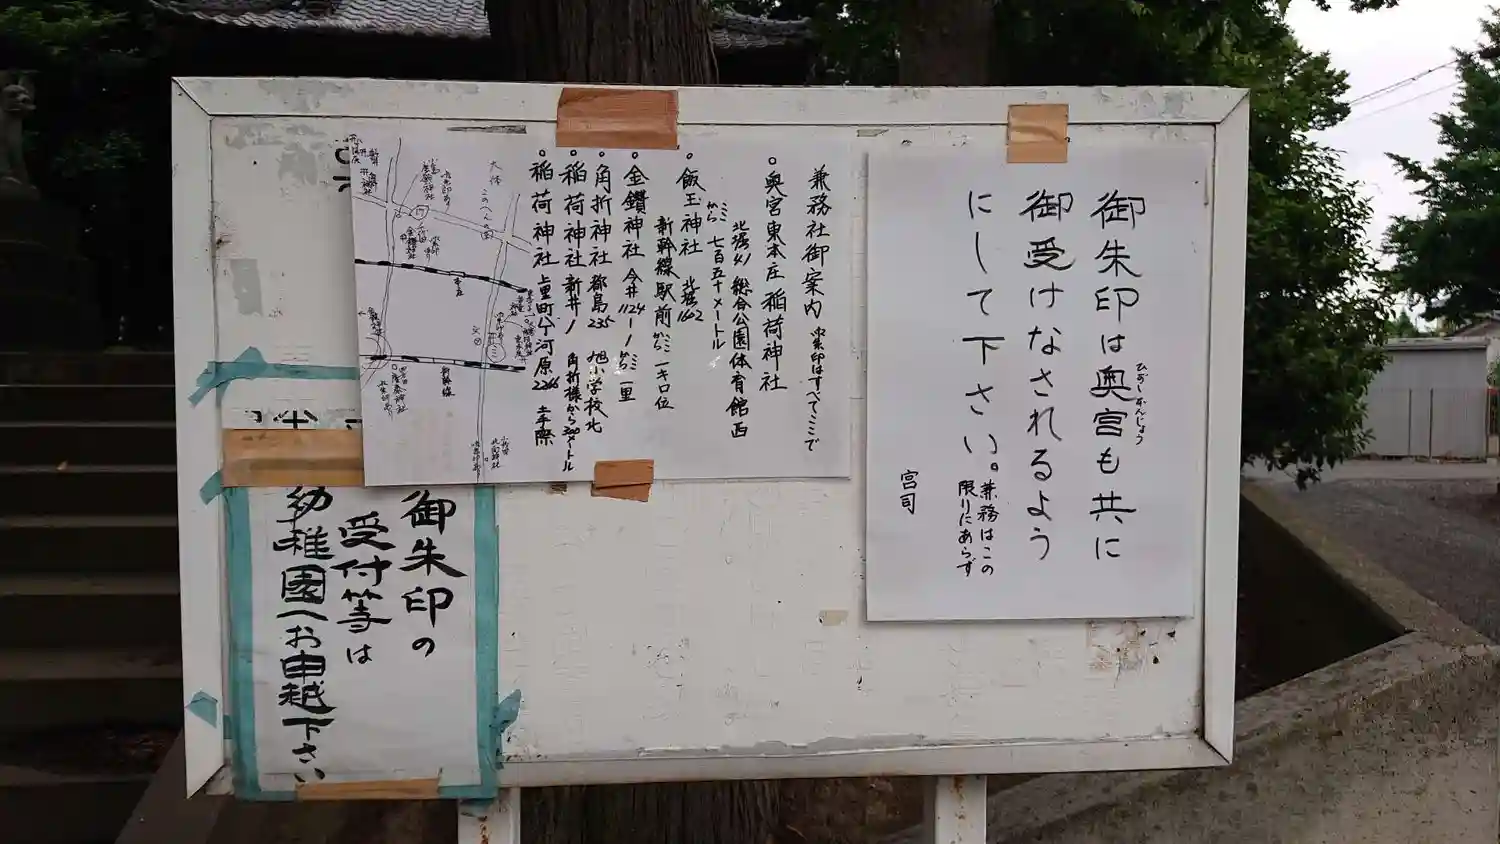 御朱印は奥宮も共に
ひがしほんじょう
御受けなされるよう
にして下さい。
兼務はこの
限りにあらず
宮司
兼務社御案内 御朱印はすべてここで
○奥宮東本庄 稲荷神社
北堀41 総合公園体育館西
ここから 七百五十メートル
○飯玉神社 北堀1602
新幹線駅前 ここから 一キロ位
○金鑚神社 今井1124ー1 ここから 一里
○角折神社 都島235 旭小学校北
○稲荷神社 新井1 角折様から300メートル
○稲荷神社 上里町八町河原2266 土手際
大体このへんの図
新幹線
御朱印の
受付等は
幼稚園へお申越下さい